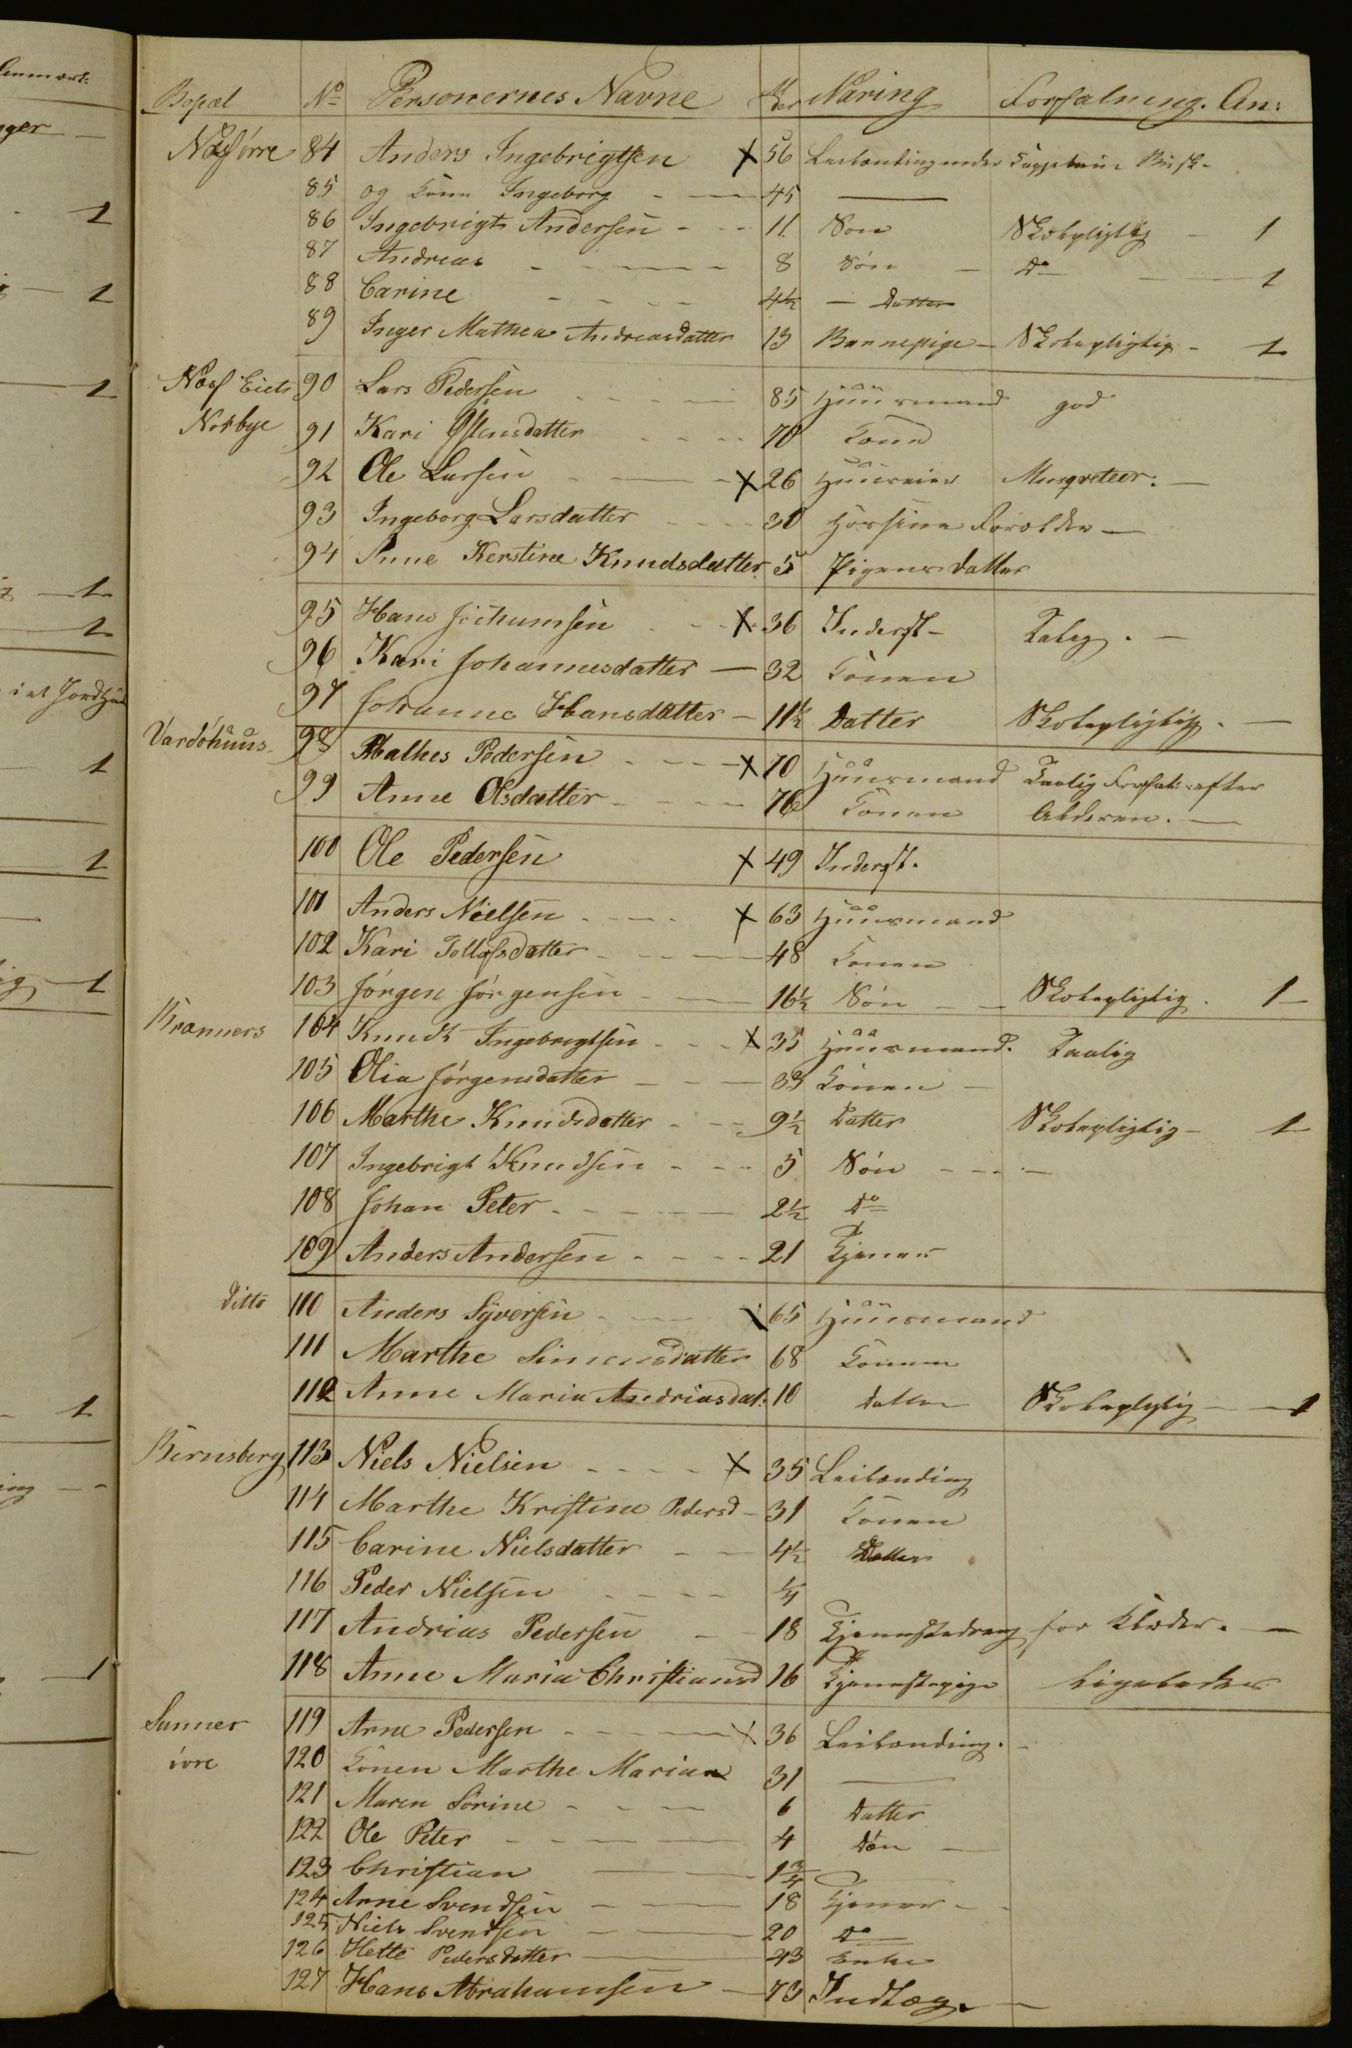 Bopæl No Personernes Navne Aar Næring Forfatning. An:
Næsførre 84 Anders Ingebrigtsen x 56 Leilænding under
85 og Kone Ingeborg 45
86 Ingebrigt Andersen 11 Søn Skolepligtig 1
87 Andreas 8 Søn Do 1
88 Carine 4½ Datter
89 Inger Mathea Andreasdatter 13 Barnepige Skolepligtig 1
Næss Eiet 90 Lars Pedersen 85 Huusmand god
Nordbye 91 Kari Østensdatter 70 Kone
92 Ole Larsen x 26 Musqveteer.
93 Ingeborg Larsdatter 30 Hos sine Forældre
94 Anne Kerstine Knudsdatter 5 Pigens Datter
95 Hans Jochumsen x 36 Inderst
96 Kari Johannesdatter 32 Konen
97 Johanne Hansdatter 11½ Datter Skolepligtig.
Vardøhuus 98 Mathes Pedersen x 70 Huusmand Taalig Forfat: efter
99 Anne Olsdatter 76 Konen Alderen.
100 Ole Pedersen x 49 Inderst.
101 Anders Nielsen x 63 Huusmand
102 Kari Tollefsdatter 48 Konen
103 Jørgen Jørgensen 16½ Søn Skolepligtig. 1
Kranners 104 Knudt Ingebregtsen x 35 Huusmand. Taalig
105 Olia Jørgensdatter 33 Konen
106 Marthe Knudsdatter 9½ Datter Skolepligtig 1
107 Ingebrigt Knudsen 5 Søn
108 Johan Peter 2½ Do
109 Anders Andersen 21 Tjener
Ditto 110 Anders Syversen 65 Huusmand
111 Marthe Simensdatter 68 Konen
112 Anne Maria Andriasdat: 10 Datter Skolepligtig 1
Bernsberg 113 Niels Nielsen x 35 Leilænding
114 Marthe Kristine Pedersd 31 Konen
115 Carine Nielsdatter 4½ Datter
116 Peder Nielsen ¼
117 Andrias Pedersen 18 Tjenestedreng for Klæder.
118 Anne Maria Christiansd 16 Tjenestepige Ligeledes
Sanner 119 Arne Pedersen x 36 Leilænding.
øvre 120 Konen Marthe Maria 31
121 Maren Sørine 6 Datter
122 Ole Peter 4 Søn
123 Christian 1¾
124 Arne Svendsen 18 Tjener
125 Niels Svendsen 20 Do
126 Hette Pedersdatter 43 Enke
127 Hans Abrahamsen 73 Indlæg.